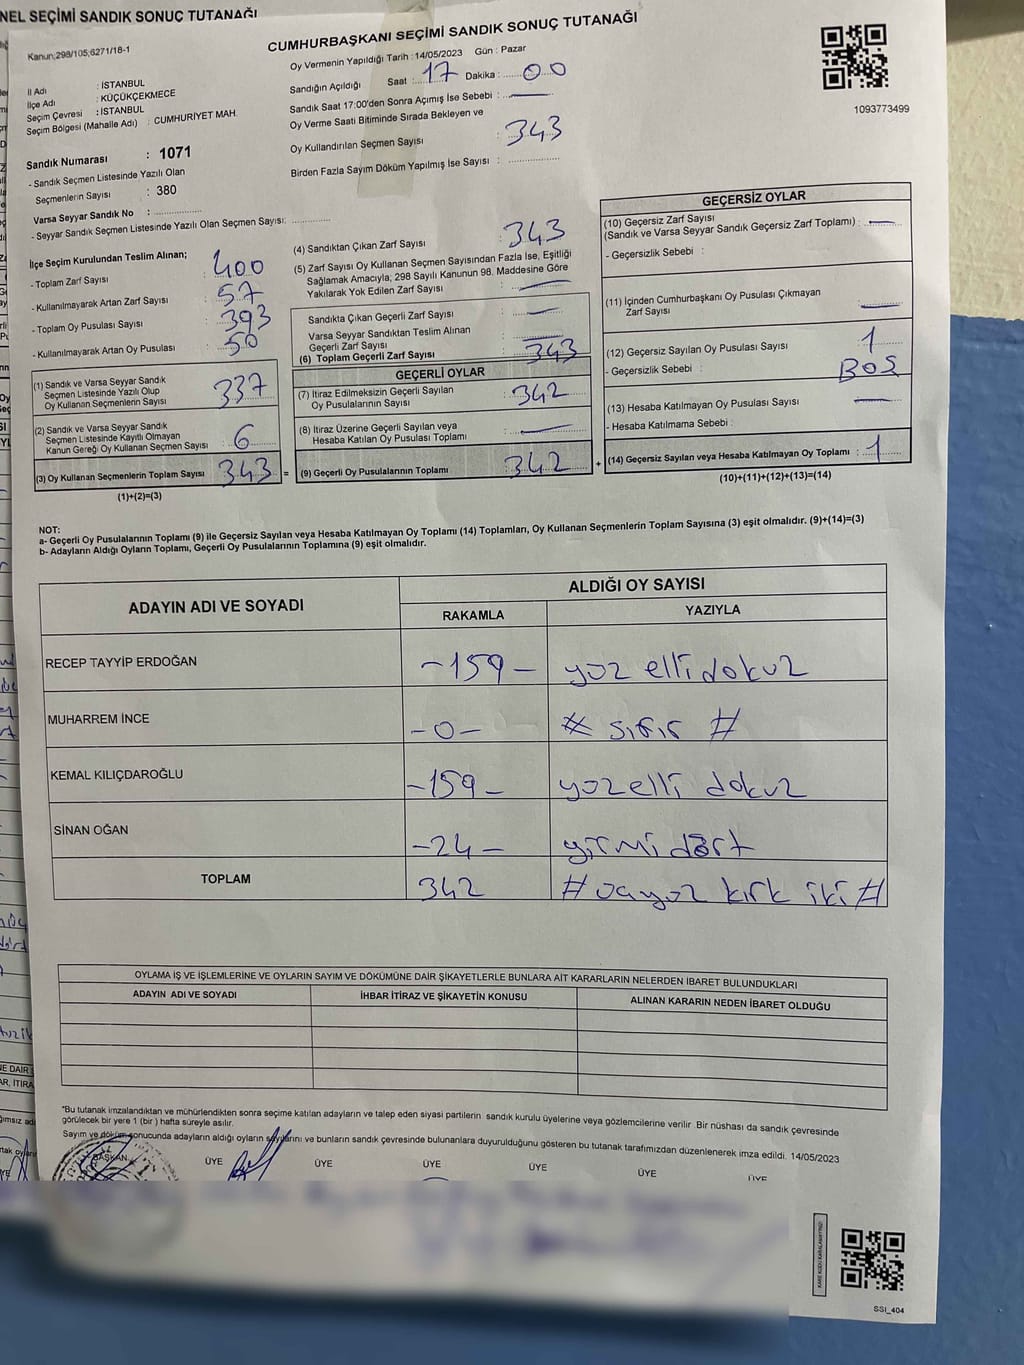 NEL SEÇİMİ SANDIK SONUÇ TUTANAĞI
CUMHURBAŞKANI SEÇİMİ SANDIK SONUÇ TUTANAĞI
Kanun;298/105;6271/18-1
İl Adı : İSTANBUL
İlçe Adı : KÜÇÜKÇEKMECE
Seçim Çevresi : İSTANBUL
Seçim Bölgesi (Mahalle Adı) : CUMHURİYET MAH.
Sandık Numarası : 1071
- Sandık Seçmen Listesinde Yazılı Olan
Seçmenlerin Sayısı : 380
Varsa Seyyar Sandık No : ..............
- Seyyar Sandık Seçmen Listesinde Yazılı Olan Seçmen Sayısı: ..............
Oy Vermenin Yapıldığı Tarih : 14/05/2023 Gün : Pazar
Sandığın Açıldığı Saat : 17 Dakika : 00
Sandık Saat 17:00'den Sonra Açımış İse Sebebi : —
Oy Verme Saati Bitiminde Sırada Bekleyen ve
Oy Kullandırılan Seçmen Sayısı : 343
Birden Fazla Sayım Döküm Yapılmış İse Sayısı : ..............
1093773499
İlçe Seçim Kurulundan Teslim Alınan;
- Toplam Zarf Sayısı : 400
- Kullanılmayarak Artan Zarf Sayısı : 57
- Toplam Oy Pusulası Sayısı : 393
- Kullanılmayarak Artan Oy Pusulası : 50
(1) Sandık ve Varsa Seyyar Sandık
Seçmen Listesinde Yazılı Olup
Oy Kullanan Seçmenlerin Sayısı : 337
(2) Sandık ve Varsa Seyyar Sandık
Seçmen Listesinde Kayıtlı Olmayan
Kanun Gereği Oy Kullanan Seçmen Sayısı : 6
(3) Oy Kullanan Seçmenlerin Toplam Sayısı : 343 =
(1)+(2)=(3)
(4) Sandıktan Çıkan Zarf Sayısı : 343
(5) Zarf Sayısı Oy Kullanan Seçmen Sayısından Fazla İse, Eşitliği
Sağlamak Amacıyla; 298 Sayılı Kanunun 98. Maddesine Göre
Yakılarak Yok Edilen Zarf Sayısı : —
Sandıkta Çıkan Geçerli Zarf Sayısı : —
Varsa Seyyar Sandıktan Teslim Alınan
Geçerli Zarf Sayısı : —
(6) Toplam Geçerli Zarf Sayısı : 343
GEÇERLİ OYLAR
(7) İtiraz Edilmeksizin Geçerli Sayılan
Oy Pusulalarının Sayısı : 342
(8) İtiraz Üzerine Geçerli Sayılan veya
Hesaba Katılan Oy Pusulası Toplamı : —
(9) Geçerli Oy Pusulalarının Toplamı : 342 +
GEÇERSİZ OYLAR
(10) Geçersiz Zarf Sayısı
(Sandık ve Varsa Seyyar Sandık Geçersiz Zarf Toplamı) : —
- Geçersizlik Sebebi :
(11) İçinden Cumhurbaşkanı Oy Pusulası Çıkmayan
Zarf Sayısı : —
(12) Geçersiz Sayılan Oy Pusulası Sayısı : 1
- Geçersizlik Sebebi : BOŞ
(13) Hesaba Katılmayan Oy Pusulası Sayısı : —
- Hesaba Katılmama Sebebi :
(14) Geçersiz Sayılan veya Hesaba Katılmayan Oy Toplamı : 1
(10)+(11)+(12)+(13)=(14)
NOT:
a- Geçerli Oy Pusulalarının Toplamı (9) ile Geçersiz Sayılan veya Hesaba Katılmayan Oy Toplamı (14) Toplamları, Oy Kullanan Seçmenlerin Toplam Sayısına (3) eşit olmalıdır. (9)+(14)=(3)
b- Adayların Aldığı Oyların Toplamı, Geçerli Oy Pusulalarının Toplamına (9) eşit olmalıdır.
ADAYIN ADI VE SOYADI ALDIĞI OY SAYISI
RAKAMLA YAZIYLA
RECEP TAYYİP ERDOĞAN -159- yüz elli dokuz
MUHARREM İNCE -0- # sıfır #
KEMAL KILIÇDAROĞLU -159- yüzelli dokuz
SİNAN OĞAN -24- yirmi dört
TOPLAM 342 # üçyüz kırk iki #
OYLAMA İŞ VE İŞLEMLERİNE VE OYLARIN SAYIM VE DÖKÜMÜNE DAİR ŞİKAYETLERLE BUNLARA AİT KARARLARIN NELERDEN İBARET BULUNDUKLARI
ADAYIN ADI VE SOYADI İHBAR İTİRAZ VE ŞİKAYETİN KONUSU ALINAN KARARIN NEDEN İBARET OLDUĞU
*Bu tutanak imzalandıktan ve mühürlendikten sonra seçime katılan adayların ve talep eden siyasi partilerin sandık kurulu üyelerine veya gözlemcilerine verilir. Bir nüshası da sandık çevresinde
görülecek bir yere 1 (bir ) hafta süreyle asılır.
Sayım ve döküm sonucunda adayların aldığı oyların sayılarını ve bunların sandık çevresinde bulunanlara duyurulduğunu gösteren bu tutanak tarafımızdan düzenlenerek imza edildi. 14/05/2023
BAŞKAN ÜYE ÜYE ÜYE ÜYE ÜYE ÜYE
SSİ_404